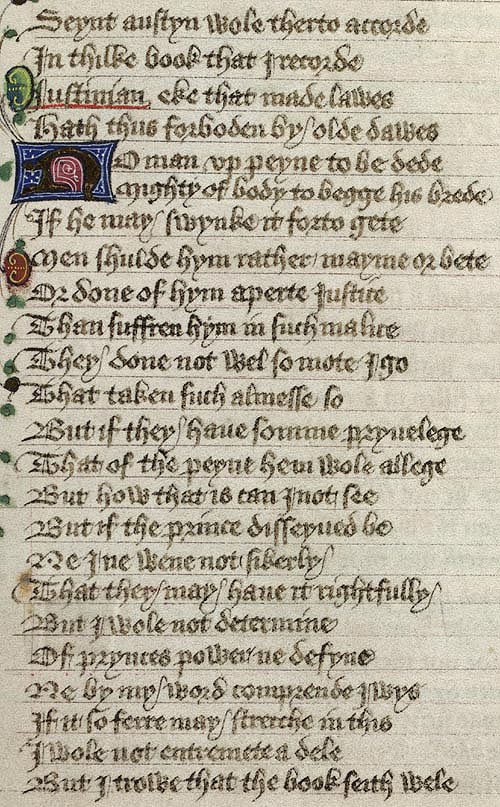 Seynt austyn wole therto accorde
In thilke book that I recorde
Iustinian eke that made lawes
Hath thus forboden by olde dawes
No man vp peyne to be dede
Mighty of body to begge his brede
If he may swynke it forto gete
Men shulde hym rather mayme or bete
Or done of hym aperte Iustice
Than suffren hym in such malice
They done not wel so mote I go
That taken such almesse so
But if they haue somme pryuelege
That of the peyne hem wole allege
But how that is can I not see
But if the prince disseyued be
Ne I ne wene not sikerly
That they may haue it rightfully
But I wole not determine
Of prynces power ne defyne
Ne by my word comprende Iwys
If it so ferre may strecche in this
I wole not entremete a dele
But I trowe that the book seith wele